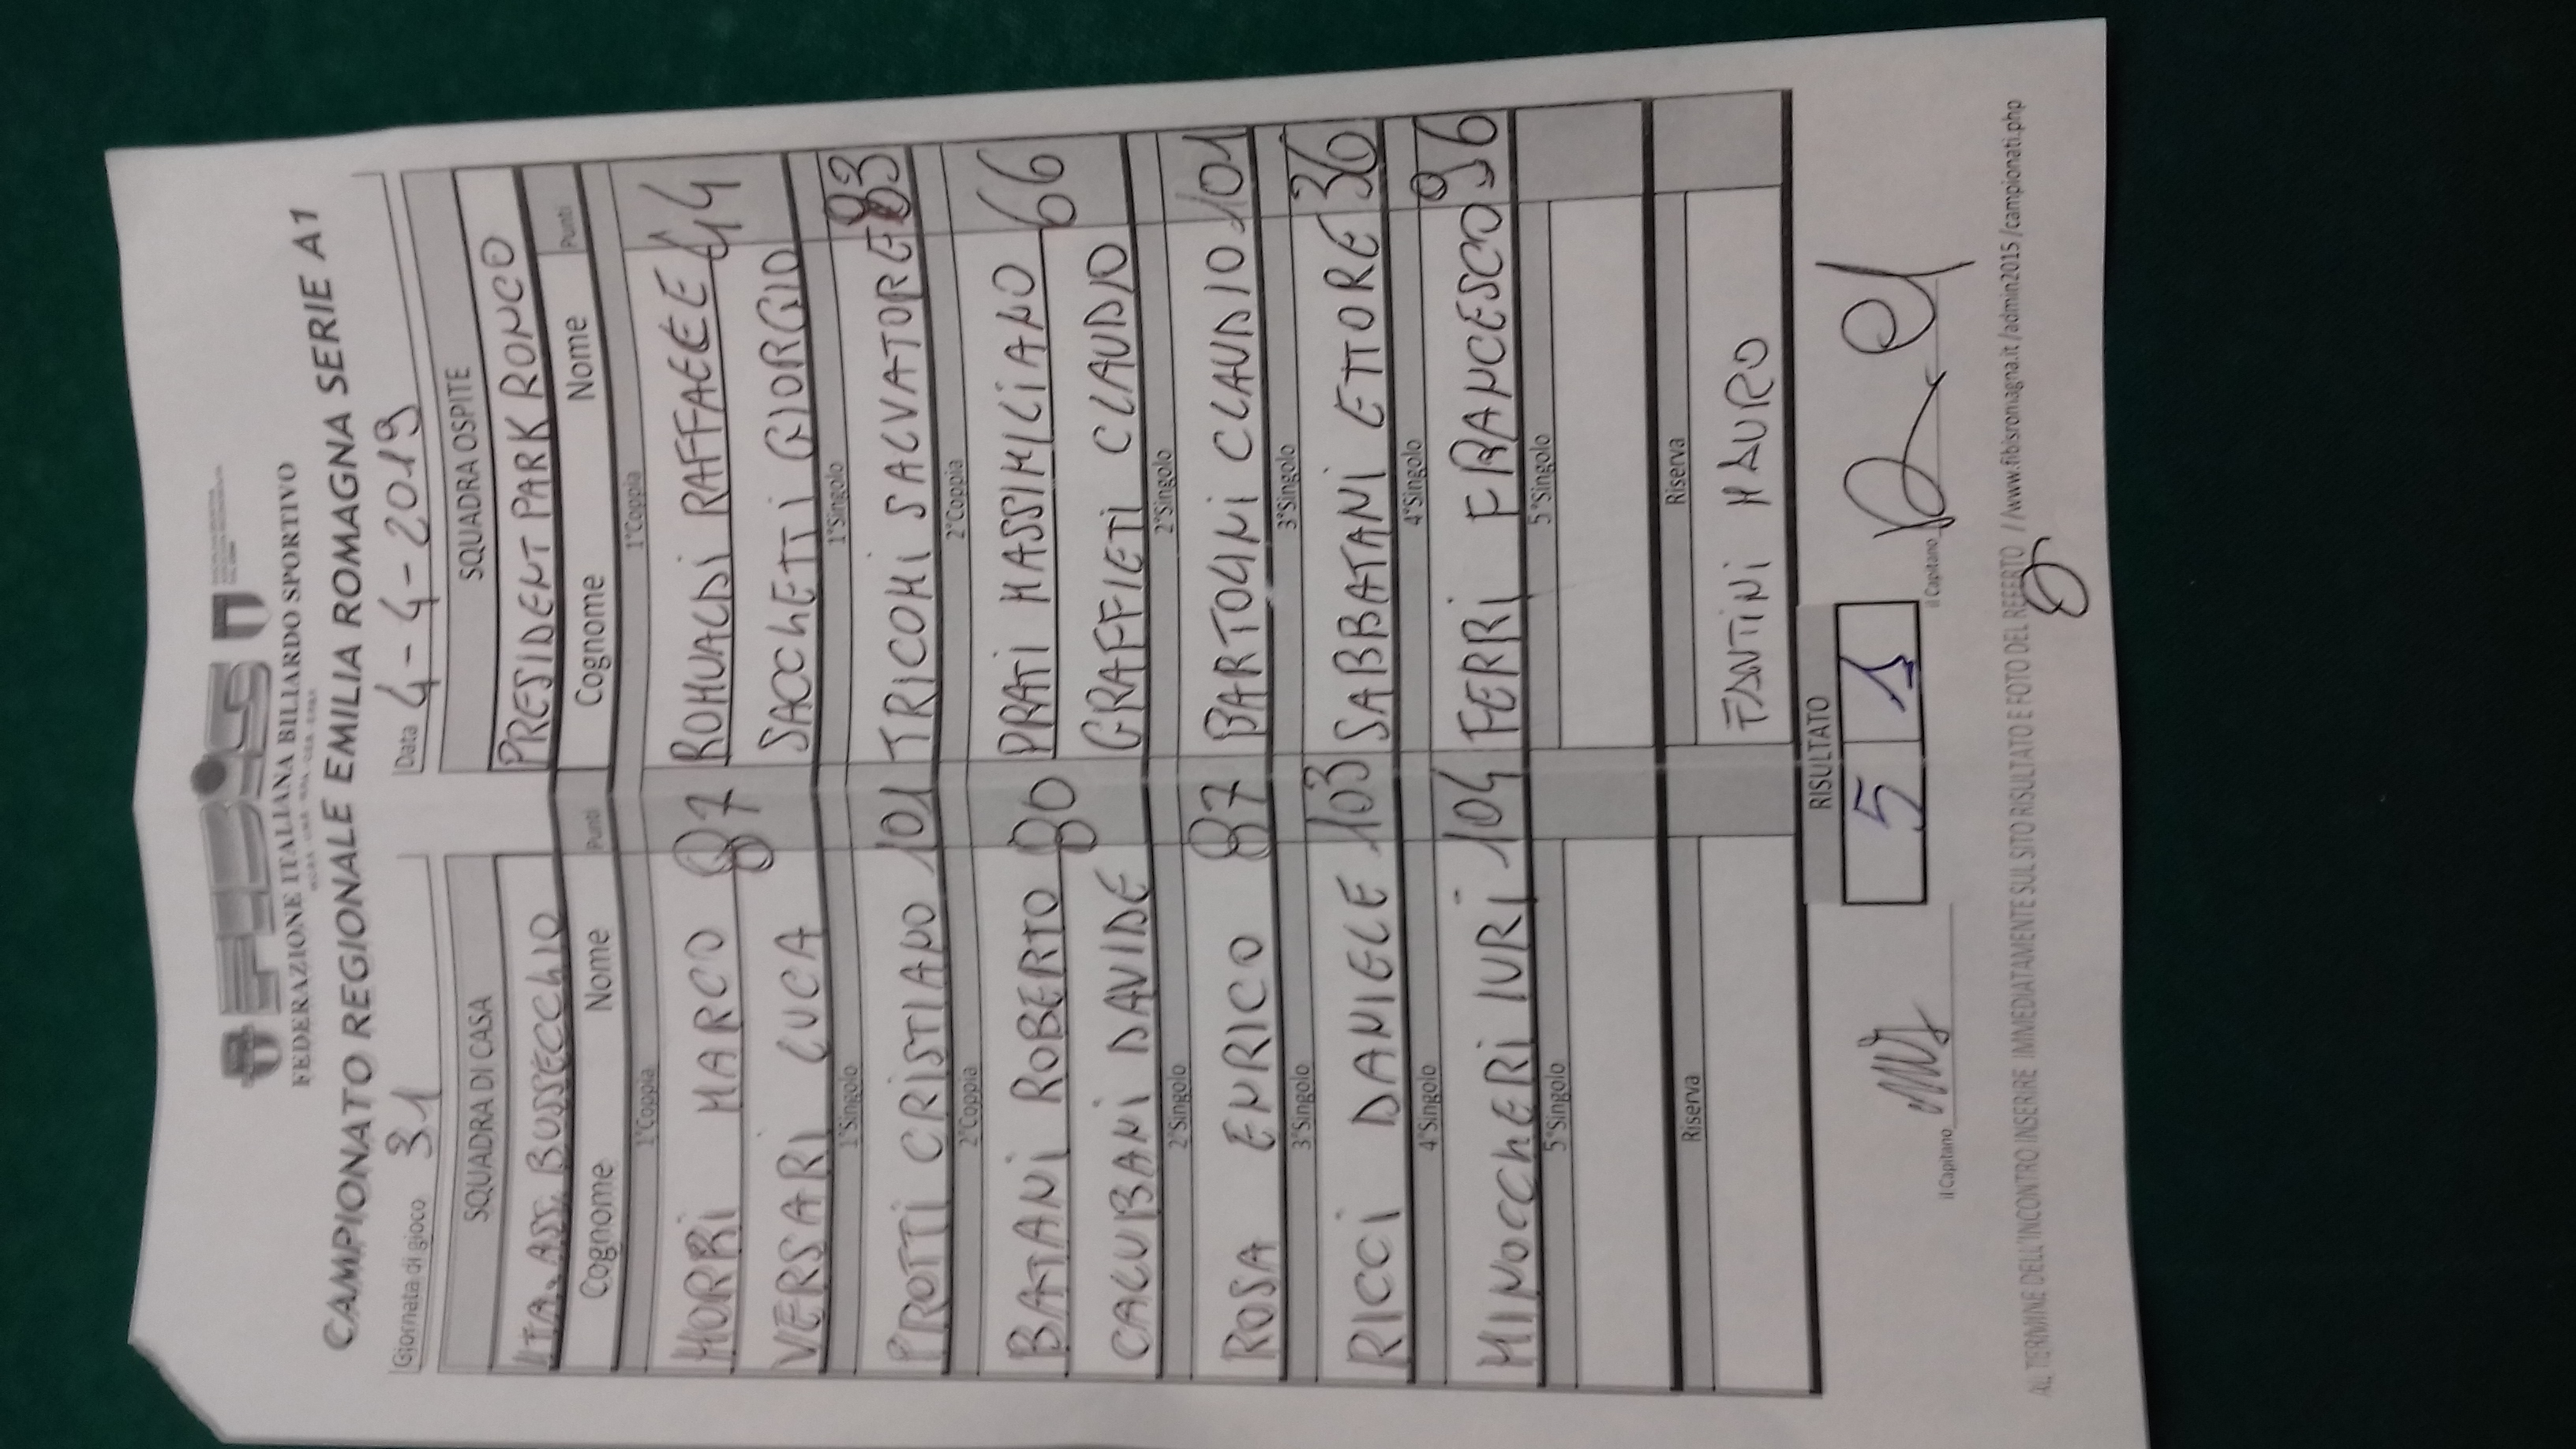 FEDERAZIONE ITALIANA BILIARDO SPORTIVO
CAMPIONATO REGIONALE EMILIA ROMAGNA SERIE A1
Giornata di gioco 31 Data 4-4-2019
SQUADRA DI CASA SQUADRA OSPITE
BUSSECCHIO PRESIDENT PARK RONCO
Cognome Nome Punti Cognome Nome Punti
1°Coppia 1°Coppia
MORRI MARCO 87 ROMUALDI RAFFAELE 44
VERSARI LUCA SACCHETTI GIORGIO
1°Singolo 1°Singolo
PROTTI CRISTIANO 101 TRICOMI SALVATORE 83
2°Coppia 2°Coppia
BATTANI ROBERTO 80 PRATI MASSIMILIANO 66
CALUBANI DAVIDE GRAFFIETI CLAUDIO
2°Singolo 2°Singolo
ROSA ENRICO 87 BARTOLINI CLAUDIO 101
3°Singolo 3°Singolo
RICCI DANIELE 103 SABBATANI ETTORE 36
4°Singolo 4°Singolo
MINOCCHERI IURI 104 FERRI FRANCESCO 96
5°Singolo 5°Singolo
Riserva Riserva
FANTINI MAURO
RISULTATO
5 1
il Capitano il Capitano
AL TERMINE DELL'INCONTRO INSERIRE IMMEDIATAMENTE SUL SITO RISULTATO E FOTO DEL REFERTO //www.fibisromagna.it/admin2015/campionati.php